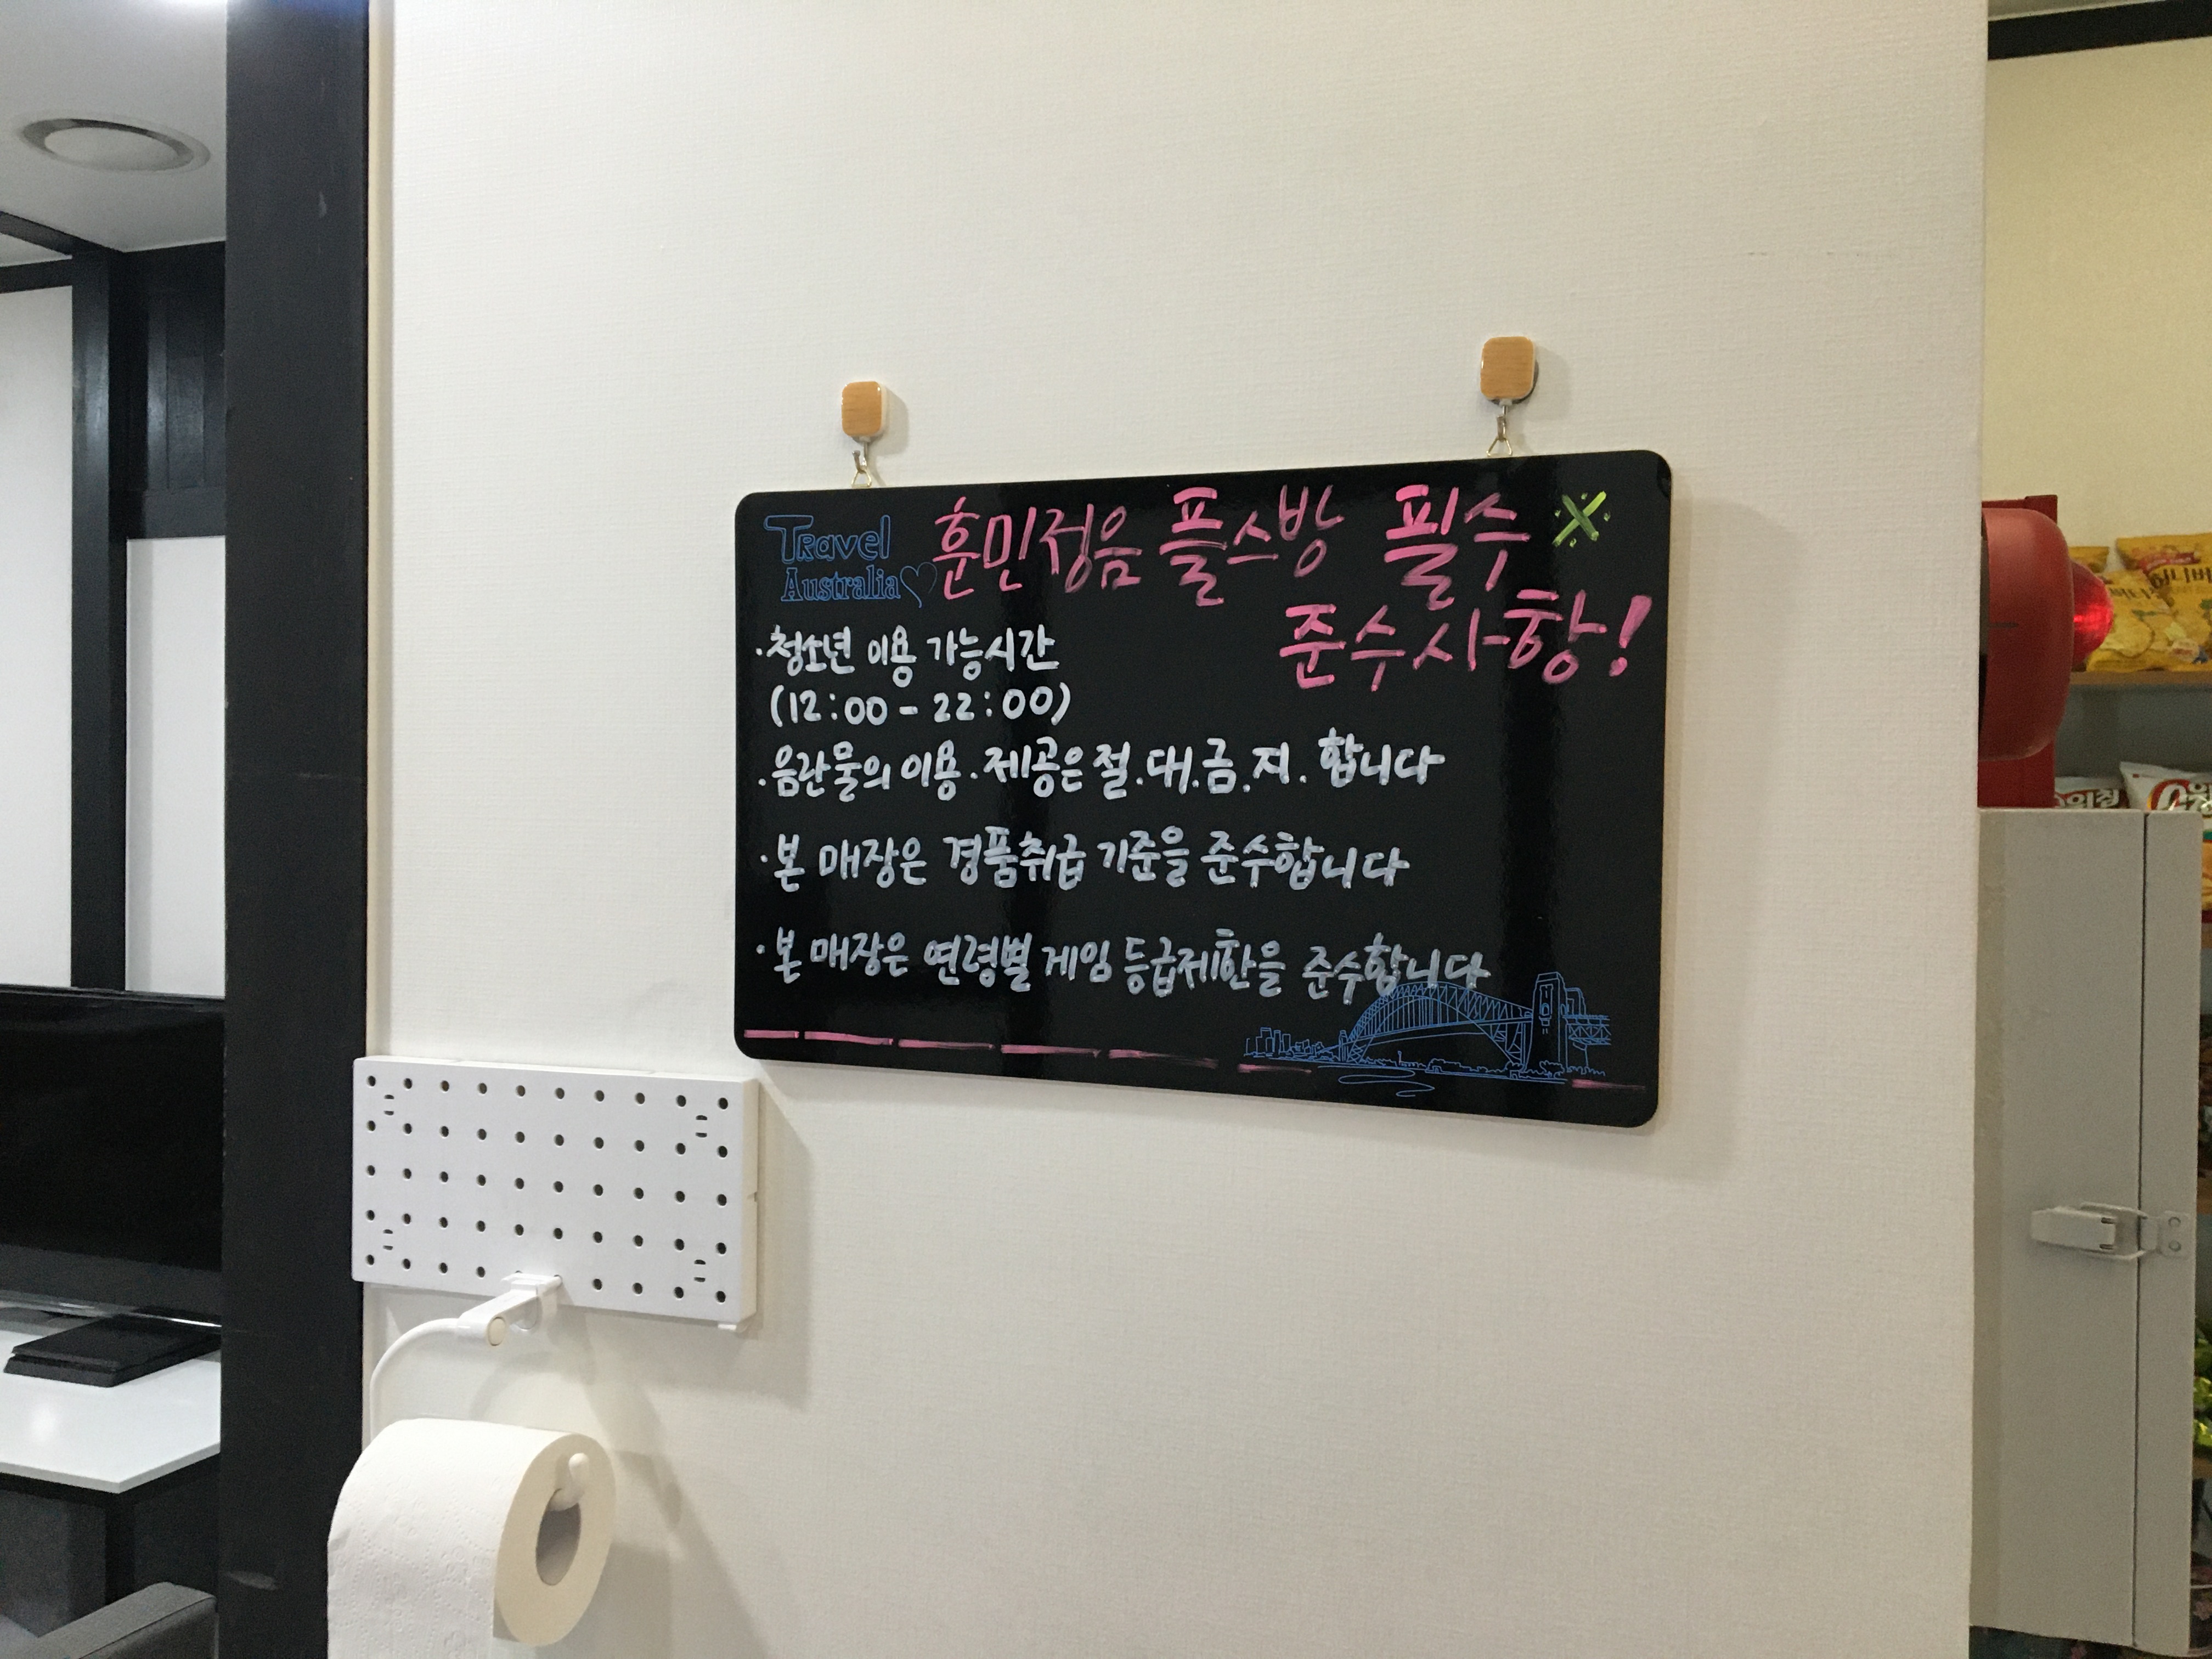 Travel
Australia
훈민정음 플스방 필수
준수사항!
·청소년 이용 가능시간
(12:00 - 22:00)
·음란물의 이용·제공은 절.대.금.지. 합니다
·본 매장은 경품취급 기준을 준수합니다
·본 매장은 연령별 게임 등급제한을 준수합니다